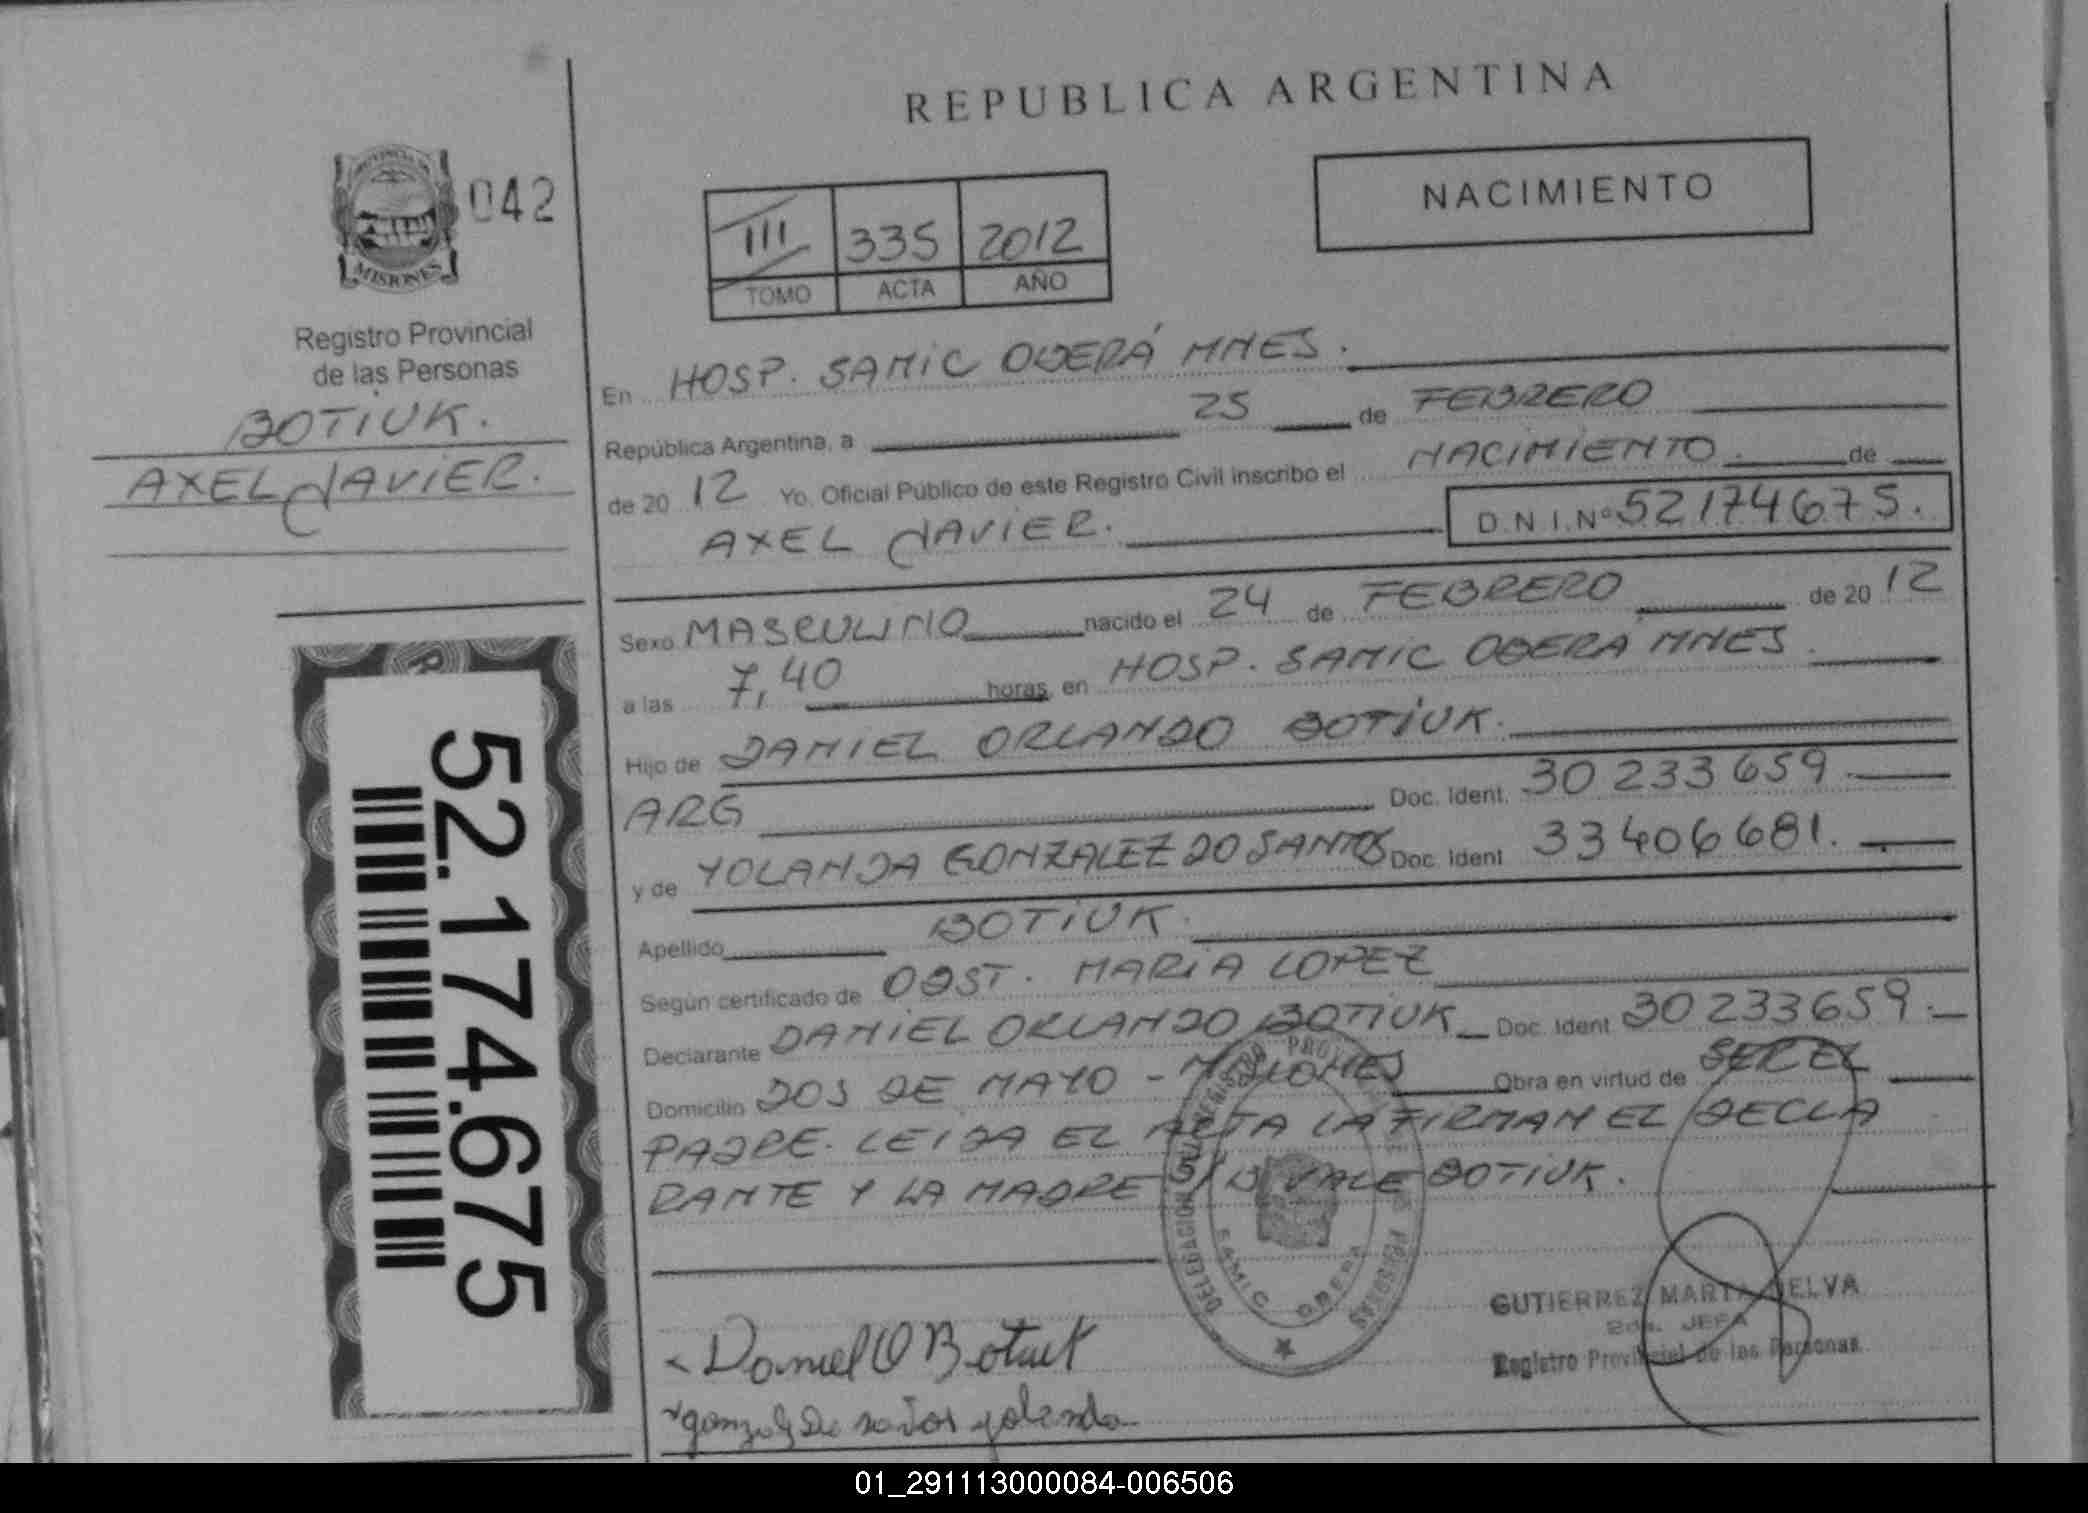 REPUBLICA ARGENTINA
PROVINCIA DE
MISIONES
042
Registro Provincial
de las Personas
BOTIUK.
AXEL JAVIER.
52.174.675
III 335 2012
TOMO ACTA AÑO
NACIMIENTO
En HOSP. SAMIC OBERÁ MNES.
República Argentina, a 25 de FEBRERO
de 20 12 Yo, Oficial Público de este Registro Civil inscribo el NACIMIENTO de
AXEL JAVIER. D.N.I.Nº 52174675.
Sexo MASCULINO nacido el 24 de FEBRERO de 20 12
a las 7,40 horas, en HOSP. SAMIC OBERA MNES
Hijo de DANIEL ORLANDO BOTIUK.
ARG Doc. Ident. 30 233 659
y de YOLANDA GONZALEZ DO SANTOS Doc. Ident 33406681.
Apellido BOTIUK.
Según certificado de OBST. MARIA LOPEZ
Declarante DANIEL ORLANDO BOTIUK Doc. Ident 30 233659.
Domicilio DOS DE MAYO - MISIONES Obra en virtud de SER EL
PADRE. LEIDA EL ACTA LA FIRMAN EL DECLA
RANTE Y LA MADRE S/B VALE BOTIUK.
DELEGACION
SAMIC OBERA
GUTIERREZ MARTA NELVA
2da. JEFA
Registro Provincial de las Personas
Daniel O Botiuk
yolanda
01_291113000084-006506